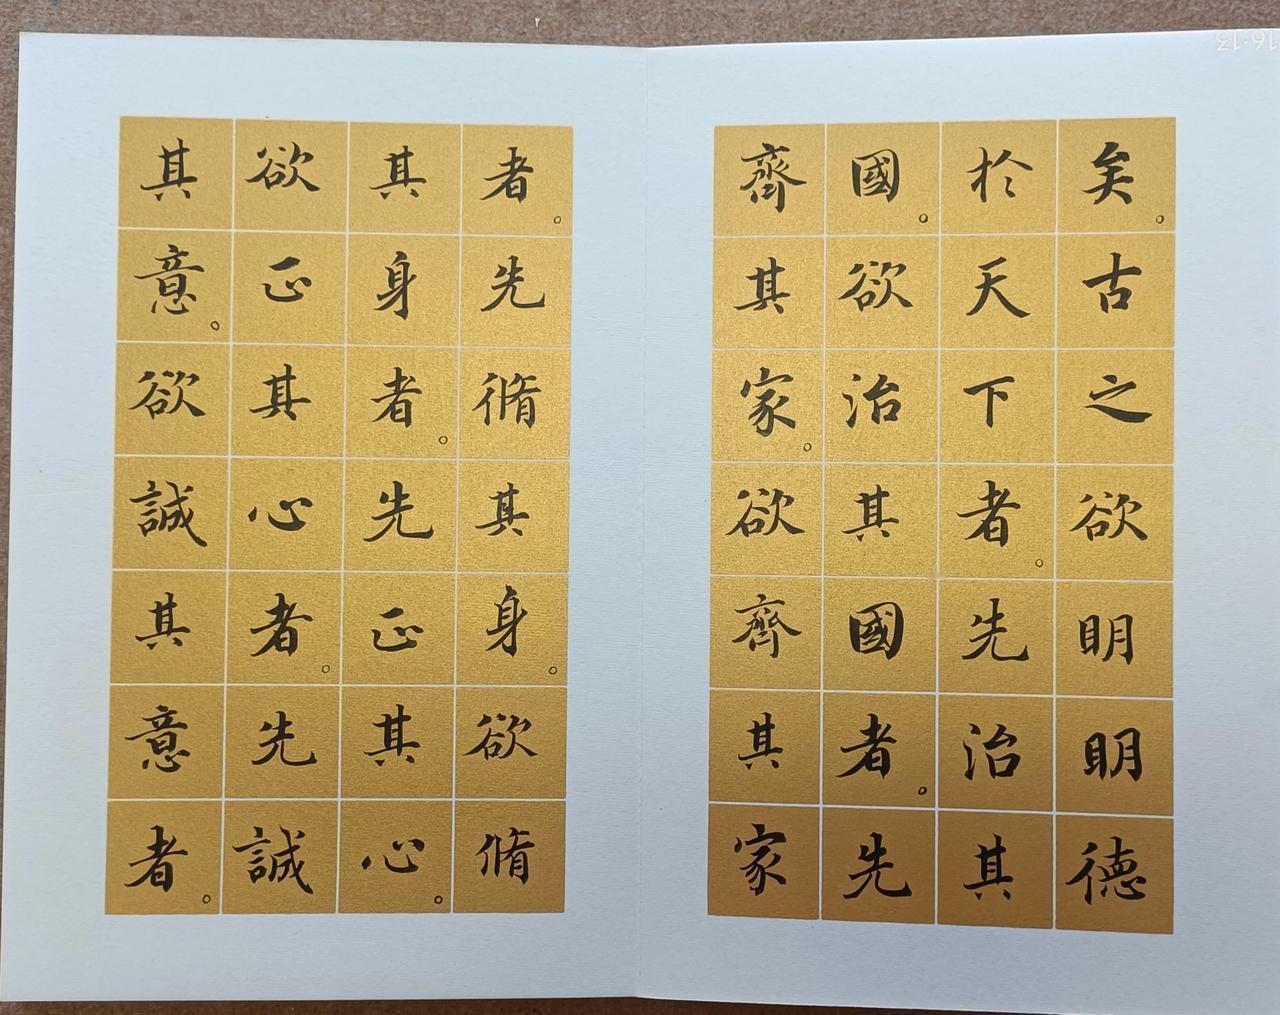 矣。古之欲明明德
於天下者。先治其
國。欲治其國者。先
齊其家。欲齊其家
者。先脩其身。欲脩
其身者。先正其心。
欲正其心者。先誠
其意。欲誠其意者。
16:13